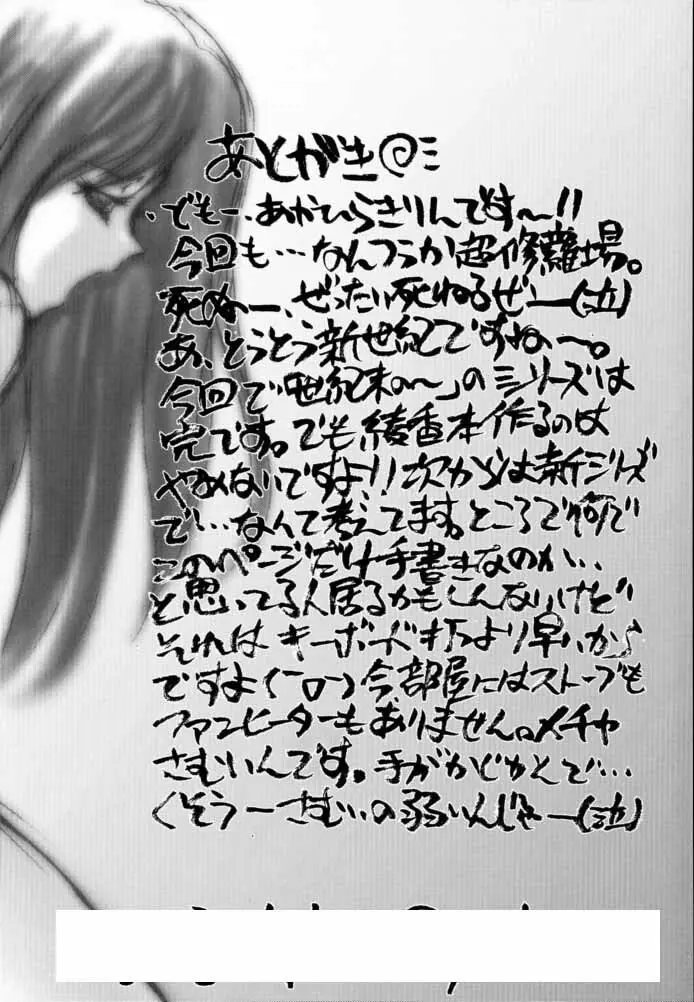 あとがき@ミ
、でもー、あかひらきりんです〜!!
今回も…なんつうか超修羅場。
死ぬー、ぜったい死ねるぜー(泣)
あ、とうとう新世紀ですね〜。
今回で「世紀末の〜」のシリーズは
完です。でも綾香本作るのは
やめないですよ!!次からは新シリーズ
で…なんて考えてます。ところで何で
このページだけ手書きなのか…
と思いてる人居るかもしんないけど
それはキーボード打つより早いから
ですよ(ーロー)今、部屋にはストーブも
ファンヒーターもありません。メチャ
さむいんです。手がかじかんで…
くそうーさむいの弱いんじゃー(泣)